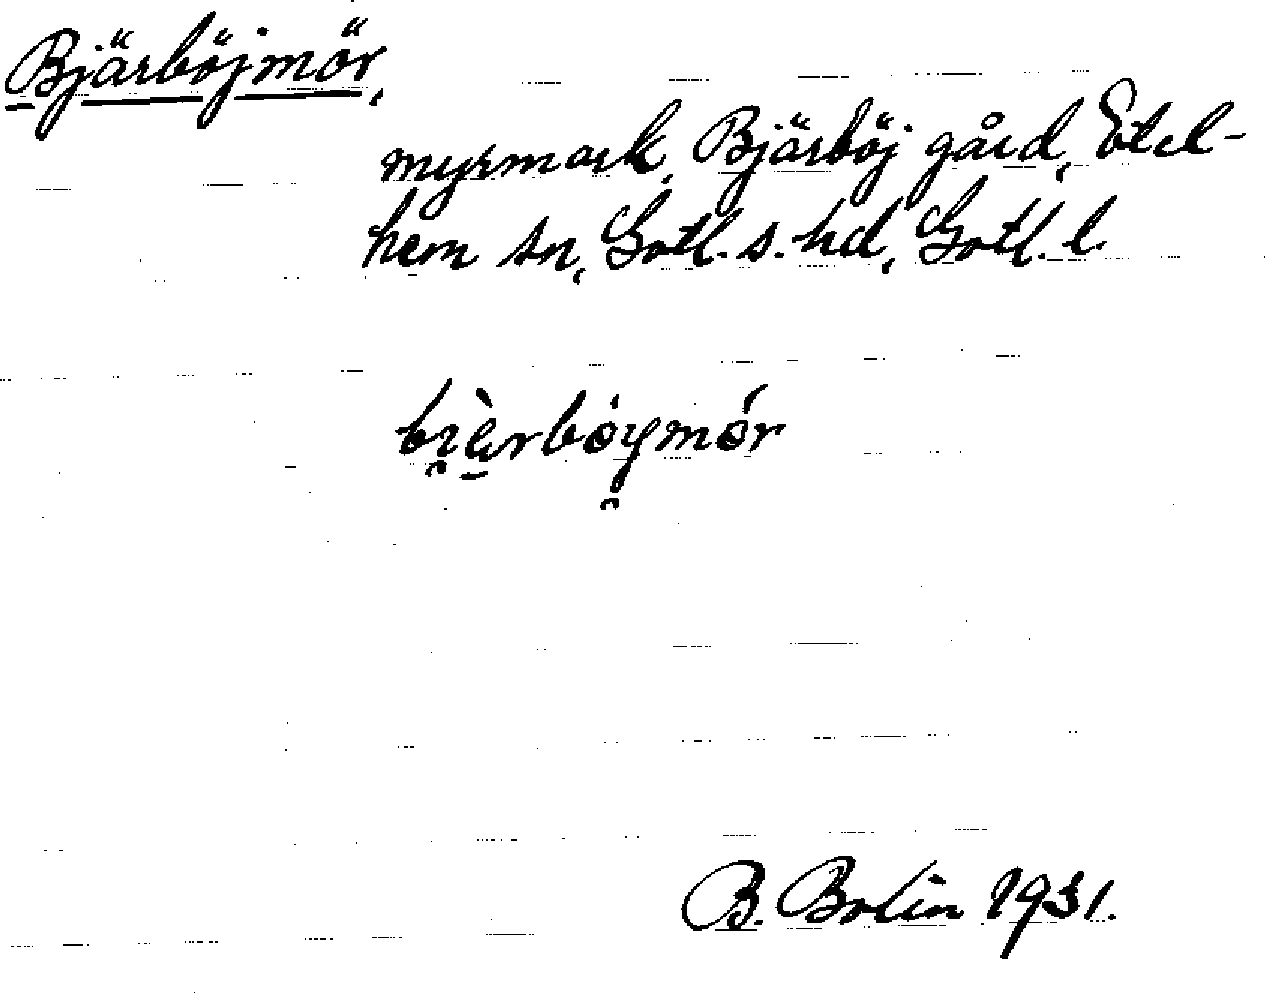 Bjärböjmör,
myrmark, Bjärböj gård, Etel-
hem sn, Gotl. s. hd, Gotl. l.
B. Bolin 1931.